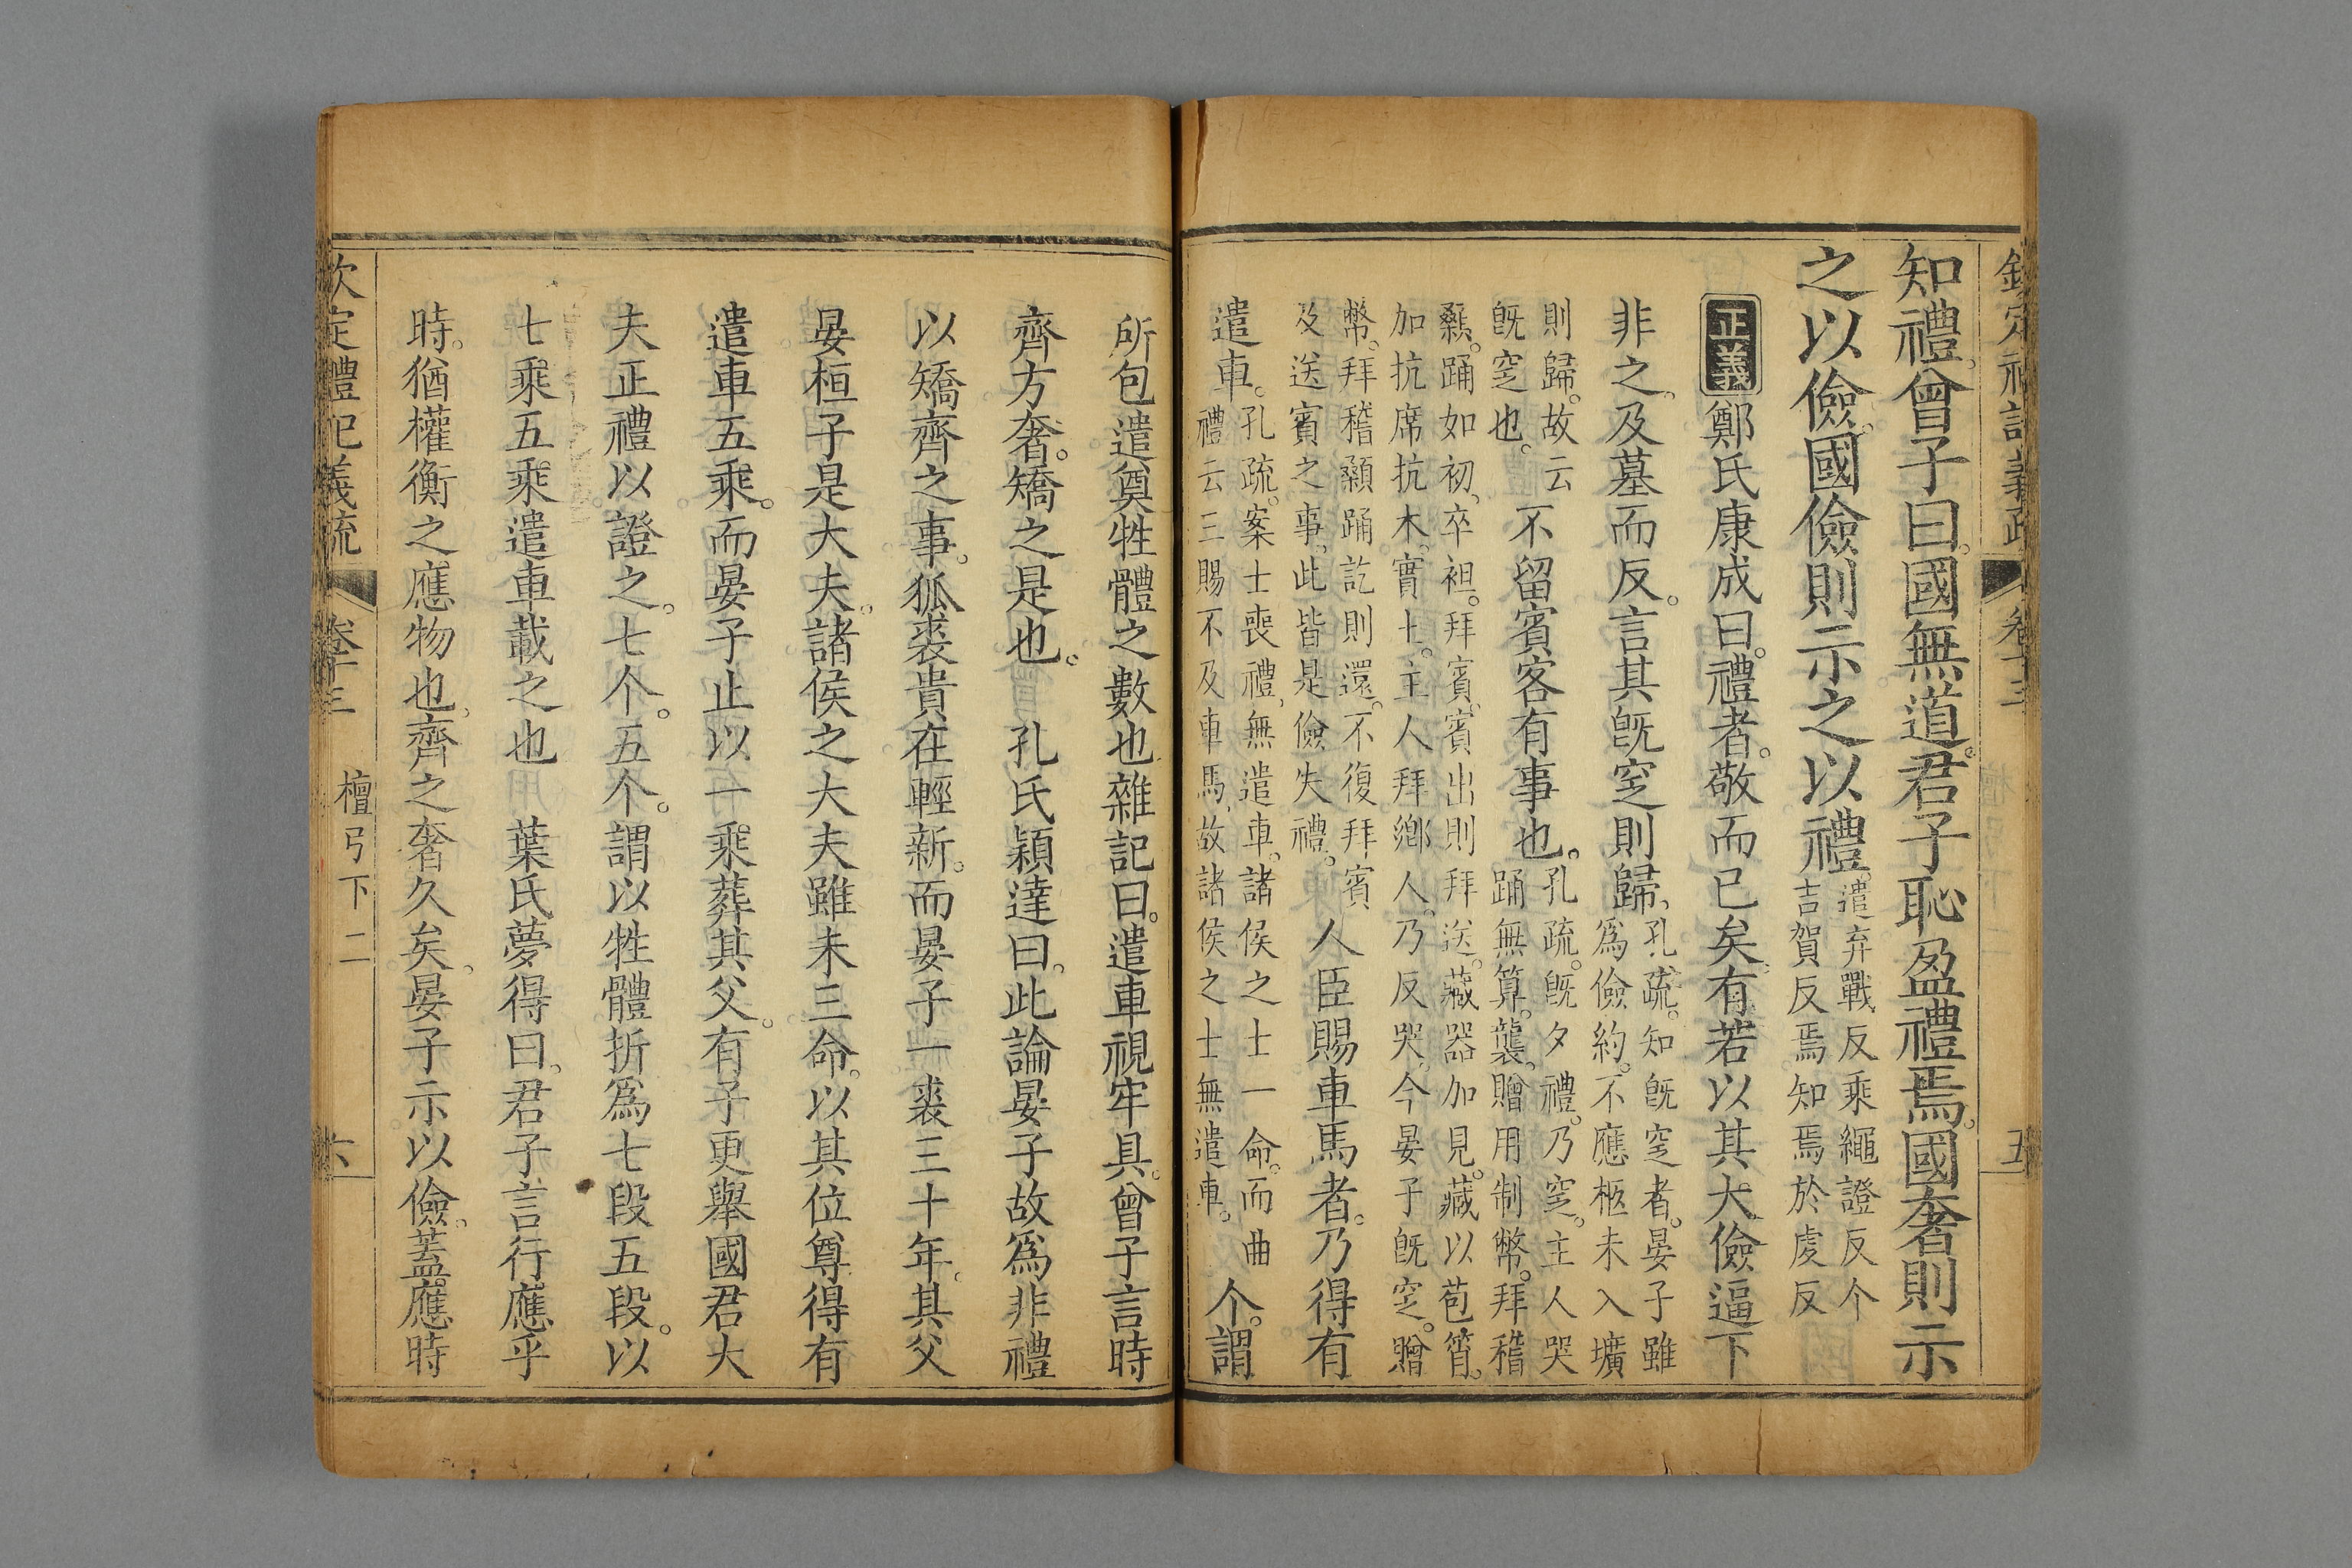 知禮曾子曰國無道君子恥盈禮焉國奢則示
之以儉國儉則示之以禮遣弃戰反乘繩證反个
吉賀反焉知焉於虔反
正義 鄭氏康成曰禮者敬而已矣有若以其大儉逼下
非之及墓而反言其旣窆則歸孔疏知旣窆者晏子雖
爲儉約不應柩未入壙
則歸故云
旣窆也
不留賓客有事也孔疏旣夕禮乃窆主人哭
踊無算襲贈用制幣拜稽
顙踊如初卒袒拜賓賓出則拜送藏器加見藏以苞筲
加抗席抗木實土主人拜鄉人乃反哭今晏子旣窆贈
幣拜稽顙踊訖則還不復拜賓
及送賓之事此皆是儉失禮
人臣賜車馬者乃得有
遣車孔疏案士喪禮無遣車諸侯之士一命而曲
禮云三賜不及車馬故諸侯之士無遣車
个謂
所包遣奠牲體之數也雜記曰遣車視牢具曾子言時
齊方奢矯之是也 孔氏穎達曰此論晏子故爲非禮
以矯齊之事狐裘貴在輕新而晏子一裘三十年其父
晏桓子是大夫諸侯之大夫雖未三命以其位尊得有
遣車五乘而晏子止以一乘葬其父有子更舉國君大
夫正禮以證之七个五个謂以牲體折爲七段五段以
七乘五乘遣車載之也 葉氏夢得曰君子言行應乎
時猶權衡之應物也齊之奢久矣晏子示以儉蓋應時
欽定禮記義疏 卷十三 檀弓下二 六